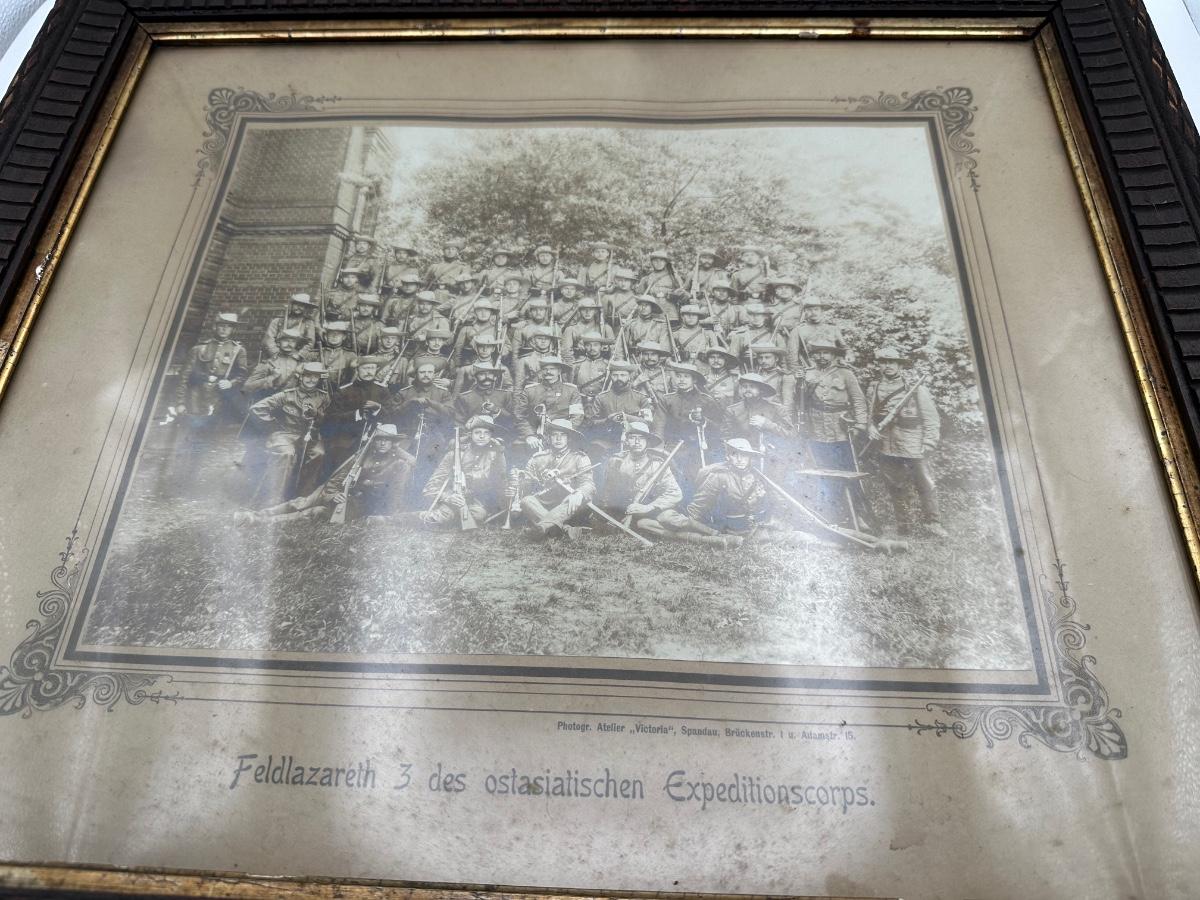 Photogr. Atelier „Victoria“, Spandau, Brückenstr. 1 u. Adamstr. 15.
Feldlazareth 3 des ostasiatischen Expeditionscorps.